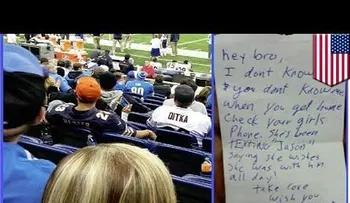 hey bro,
I dont know
& you dont know me
when you get home
Check your girls
Phone. She's been
texting "Jason"
Saying she wishes
She was with him
all day!
take care
wish you
DITKA